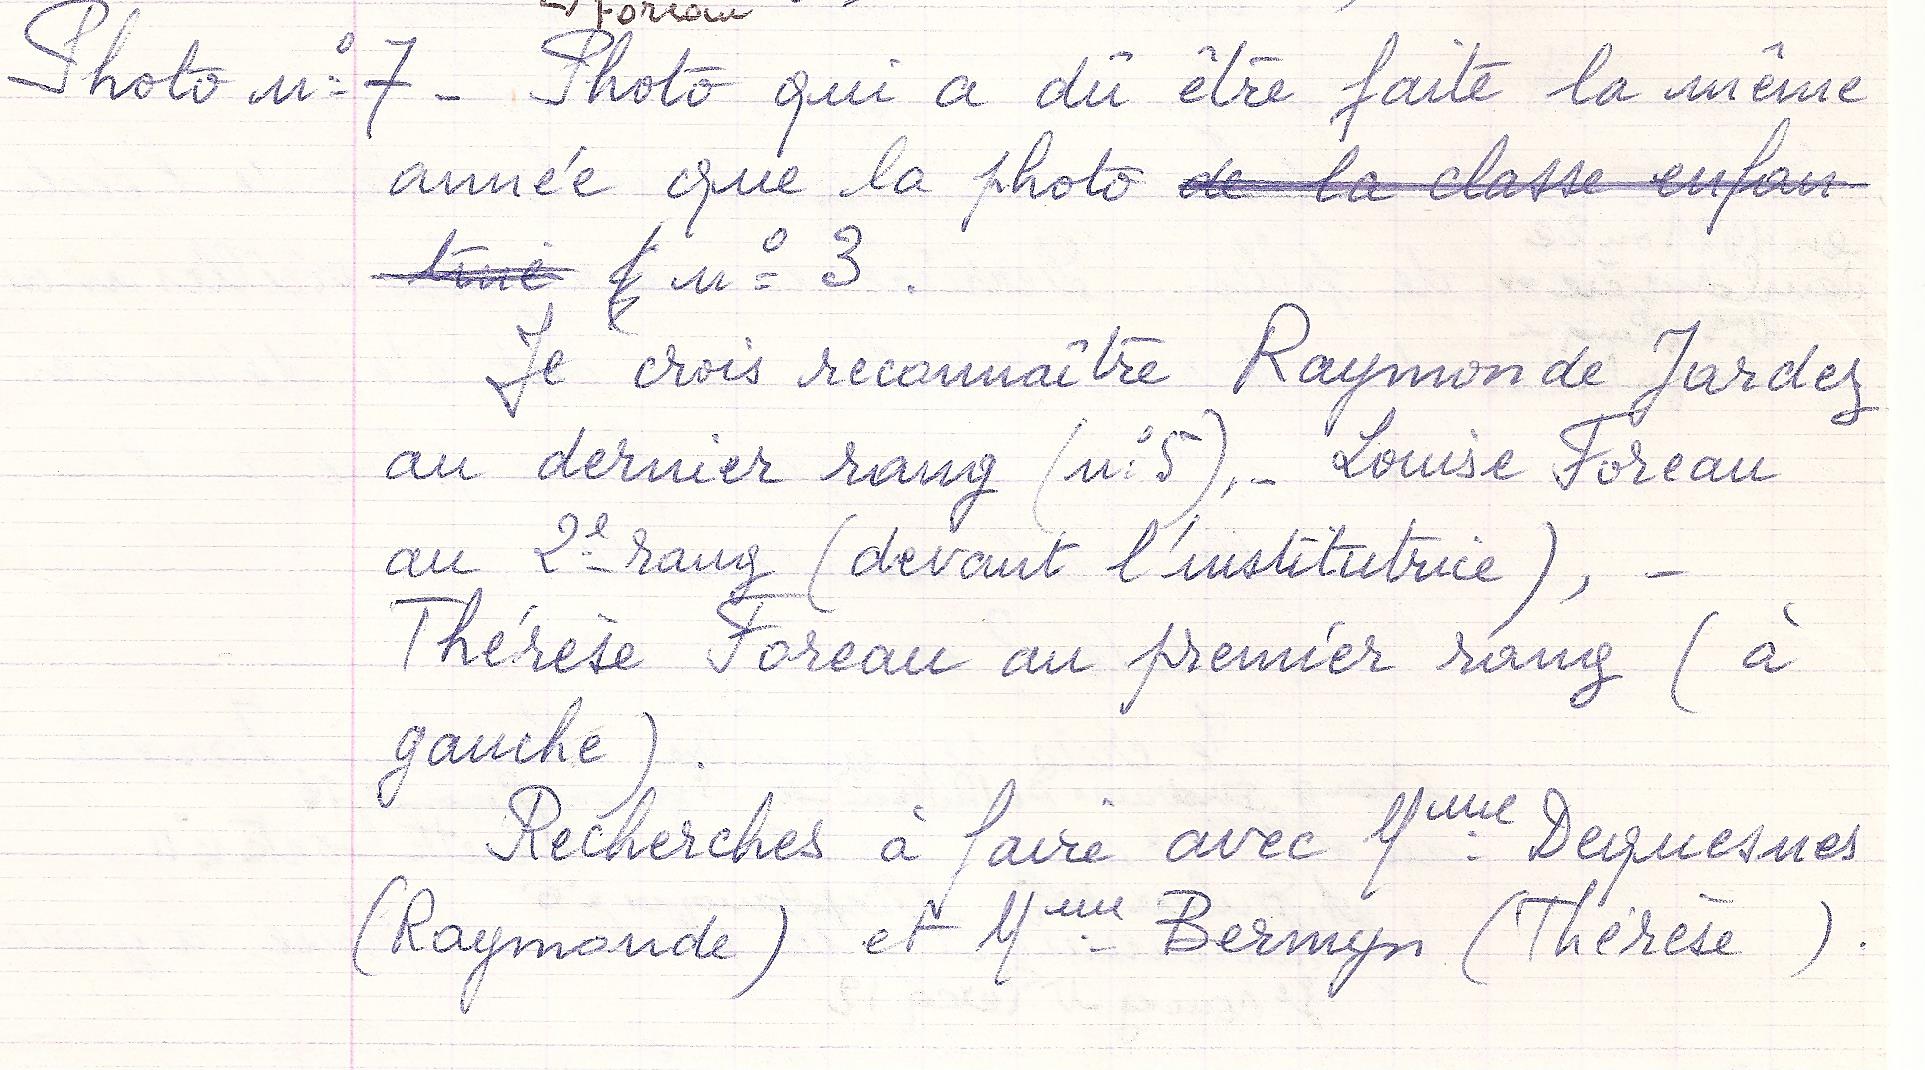 Foreau
Photo n° 7 - Photo qui a dû être faite la même
année que la photo de la classe enfan
tine n° 3.
Je crois reconnaître Raymonde Jardez
au dernier rang (n° 5), - Louise Foreau
au 2e rang (devant l'institutrice), -
Thérèse Foreau au premier rang (à
gauche).
Recherches à faire avec Mme Dequesnes
(Raymonde) et Mme Bermyn (Thérèse).